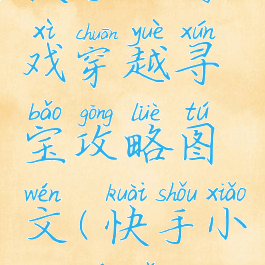 xì chuān yuè xún
戏穿越寻
bǎo gōng lüè tú
宝攻略图
wén kuài shǒu xiǎo
文(快手小